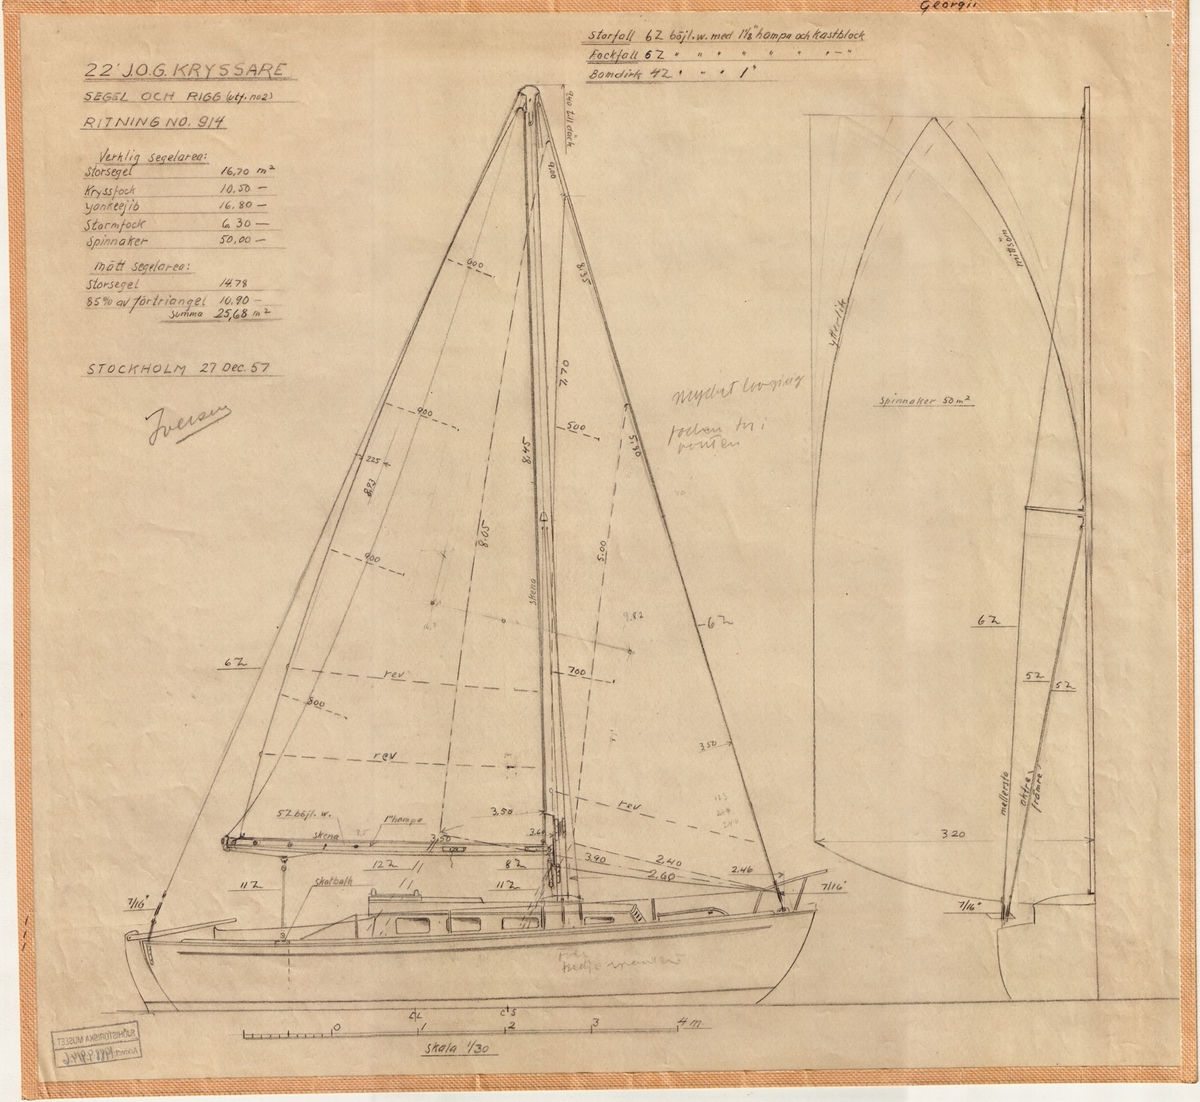 Georgii
Storfall 6Z böjl.w. med 1 1/8" hampa och Kastblock
Fockfall 6Z " " " " " " -"-
Bomdirk 4Z " " " 1"
22' J.O.G. KRYSSARE
SEGEL OCH RIGG (utf. no 2)
RITNING NO. 914
Verklig segelarea:
Storsegel 16,70 m²
Kryssfock 10,50 —
Yankeejib 16.80 —
Stormfock 6 30 —
Spinnaker 50,00 —
Mätt segelarea:
Storsegel 14.78
85% av förtriangel 10.90 —
Summa 25,68 m²
STOCKHOLM 27 Dec. 57
Iversen
940 till däck
9.00
600
8.35
900
225
8.93
900
8.45
8.05
7.70
500
5.30
5.00
skena
Mycket
9.82
6Z
6Z
rev
700
800
rev
3.50
rev
5Z böjl. w.
skena
1" hampa
3.50
3.50
3.60
12Z
8Z
3.90
2.40
2.60
2.46
11Z
Skotbalk
11Z
7/16"
7/16"
ytterlik
mittsöm
Spinnaker 50 m²
6Z
5Z
5Z
mellersta
aktre
främre
3.20
7/16"
0 1 2 3 4 m
Skala 1/30
SJÖHISTORISKA MUSEET